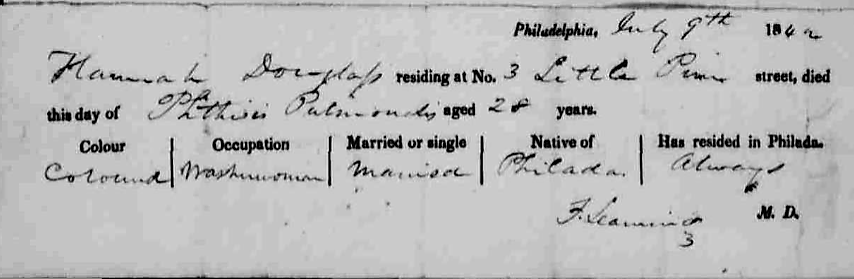 Philadelphia, July 9th 1842
Hannah Douglass residing at No. 3 Little Pine street, died
this day of Phthisis Pulmonalis aged 28 years.
Colour Occupation Married or single Native of Has resided in Philada.
Coloured Washerwoman Married Philada. Always
F. Leaming M. D.